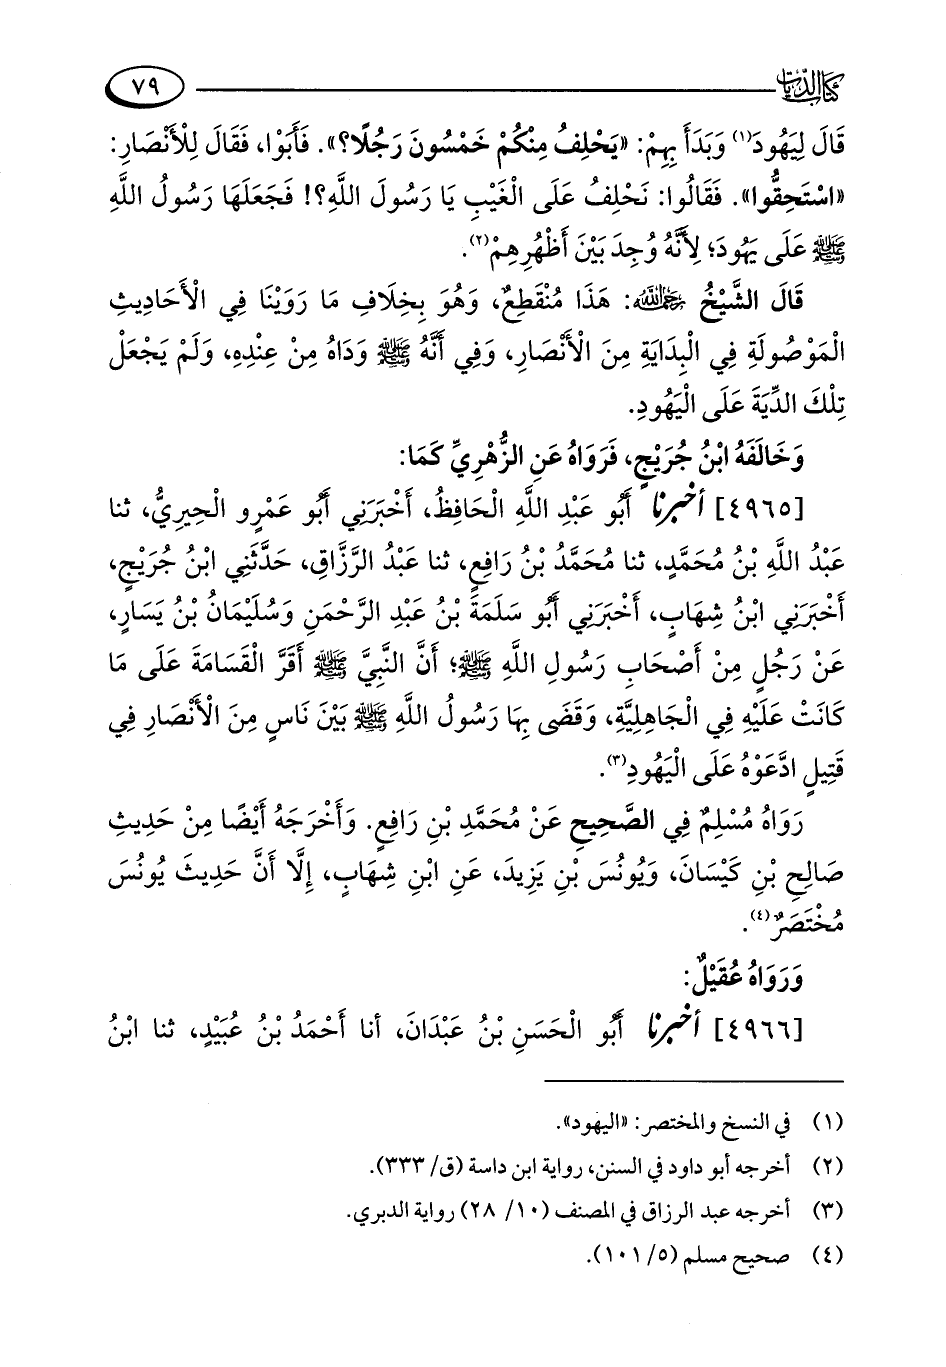 كتاب الديات
٧٩
قَالَ لِيَهُودَ(١) وَبَدَأَ بِهِمْ: «يَحْلِفُ مِنْكُمْ خَمْسُونَ رَجُلًا؟». فَأَبَوْا، فَقَالَ لِلْأَنْصَارِ:
«اسْتَحِقُّوا». فَقَالُوا: نَحْلِفُ عَلَى الْغَيْبِ يَا رَسُولَ اللَّهِ؟! فَجَعَلَهَا رَسُولُ اللَّهِ
ﷺ عَلَى يَهُودَ؛ لِأَنَّهُ وُجِدَ بَيْنَ أَظْهُرِهِمْ(٢).
قَالَ الشَّيْخُ رحمه الله: هَذَا مُنْقَطِعٌ، وَهُوَ بِخِلَافِ مَا رَوَيْنَا فِي الْأَحَادِيثِ
الْمَوْصُولَةِ فِي الْبِدَايَةِ مِنَ الْأَنْصَارِ، وَفِي أَنَّهُ ﷺ وَدَاهُ مِنْ عِنْدِهِ، وَلَمْ يَجْعَلْ
تِلْكَ الدِّيَةَ عَلَى الْيَهُودِ.
وَخَالَفَهُ ابْنُ جُرَيْجٍ، فَرَوَاهُ عَنِ الزُّهْرِيِّ كَمَا:
[٤٩٦٥] أخبرنا أَبُو عَبْدِ اللَّهِ الْحَافِظُ، أَخْبَرَنِي أَبُو عَمْرٍو الْحِيرِيُّ، ثنا
عَبْدُ اللَّهِ بْنُ مُحَمَّدٍ، ثنا مُحَمَّدُ بْنُ رَافِعٍ، ثنا عَبْدُ الرَّزَّاقِ، حَدَّثَنِي ابْنُ جُرَيْجٍ،
أَخْبَرَنِي ابْنُ شِهَابٍ، أَخْبَرَنِي أَبُو سَلَمَةَ بْنُ عَبْدِ الرَّحْمَنِ وَسُلَيْمَانُ بْنُ يَسَارٍ،
عَنْ رَجُلٍ مِنْ أَصْحَابِ رَسُولِ اللَّهِ ﷺ؛ أَنَّ النَّبِيَّ ﷺ أَقَرَّ الْقَسَامَةَ عَلَى مَا
كَانَتْ عَلَيْهِ فِي الْجَاهِلِيَّةِ، وَقَضَى بِهَا رَسُولُ اللَّهِ ﷺ بَيْنَ نَاسٍ مِنَ الْأَنْصَارِ فِي
قَتِيلٍ ادَّعَوْهُ عَلَى الْيَهُودِ(٣).
رَوَاهُ مُسْلِمٌ فِي الصَّحِيحِ عَنْ مُحَمَّدِ بْنِ رَافِعٍ. وَأَخْرَجَهُ أَيْضًا مِنْ حَدِيثِ
صَالِحِ بْنِ كَيْسَانَ، وَيُونُسَ بْنِ يَزِيدَ، عَنِ ابْنِ شِهَابٍ، إِلَّا أَنَّ حَدِيثَ يُونُسَ
مُخْتَصَرٌ(٤).
وَرَوَاهُ عُقَيْلٌ:
[٤٩٦٦] أخبرنا أَبُو الْحَسَنِ بْنُ عَبْدَانَ، أنا أَحْمَدُ بْنُ عُبَيْدٍ، ثنا ابْنُ
(١) في النسخ والمختصر: «اليهود».
(٢) أخرجه أبو داود في السنن، رواية ابن داسة (ق/ ٣٣٣).
(٣) أخرجه عبد الرزاق في المصنف (١٠/ ٢٨) رواية الدبري.
(٤) صحيح مسلم (٥/ ١٠١).